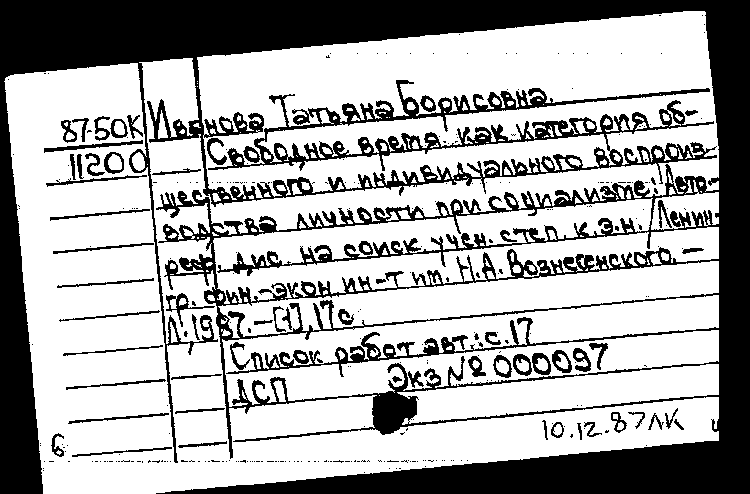 87-50К Иванова, Татьяна Борисовна.
11200 Свободное время как категория об-
щественного и индивидуального воспроиз-
водства личности при социализме: Авто-
реф. дис. на соиск. учен. степ. к.э.н. / Ленин-
гр. фин.-экон. ин-т им. Н.А. Вознесенского. —
Л., 1987. — [1], 17 с.
Список работ авт.: с. 17
ДСП Экз № 000097
10.12.87 ЛК
6